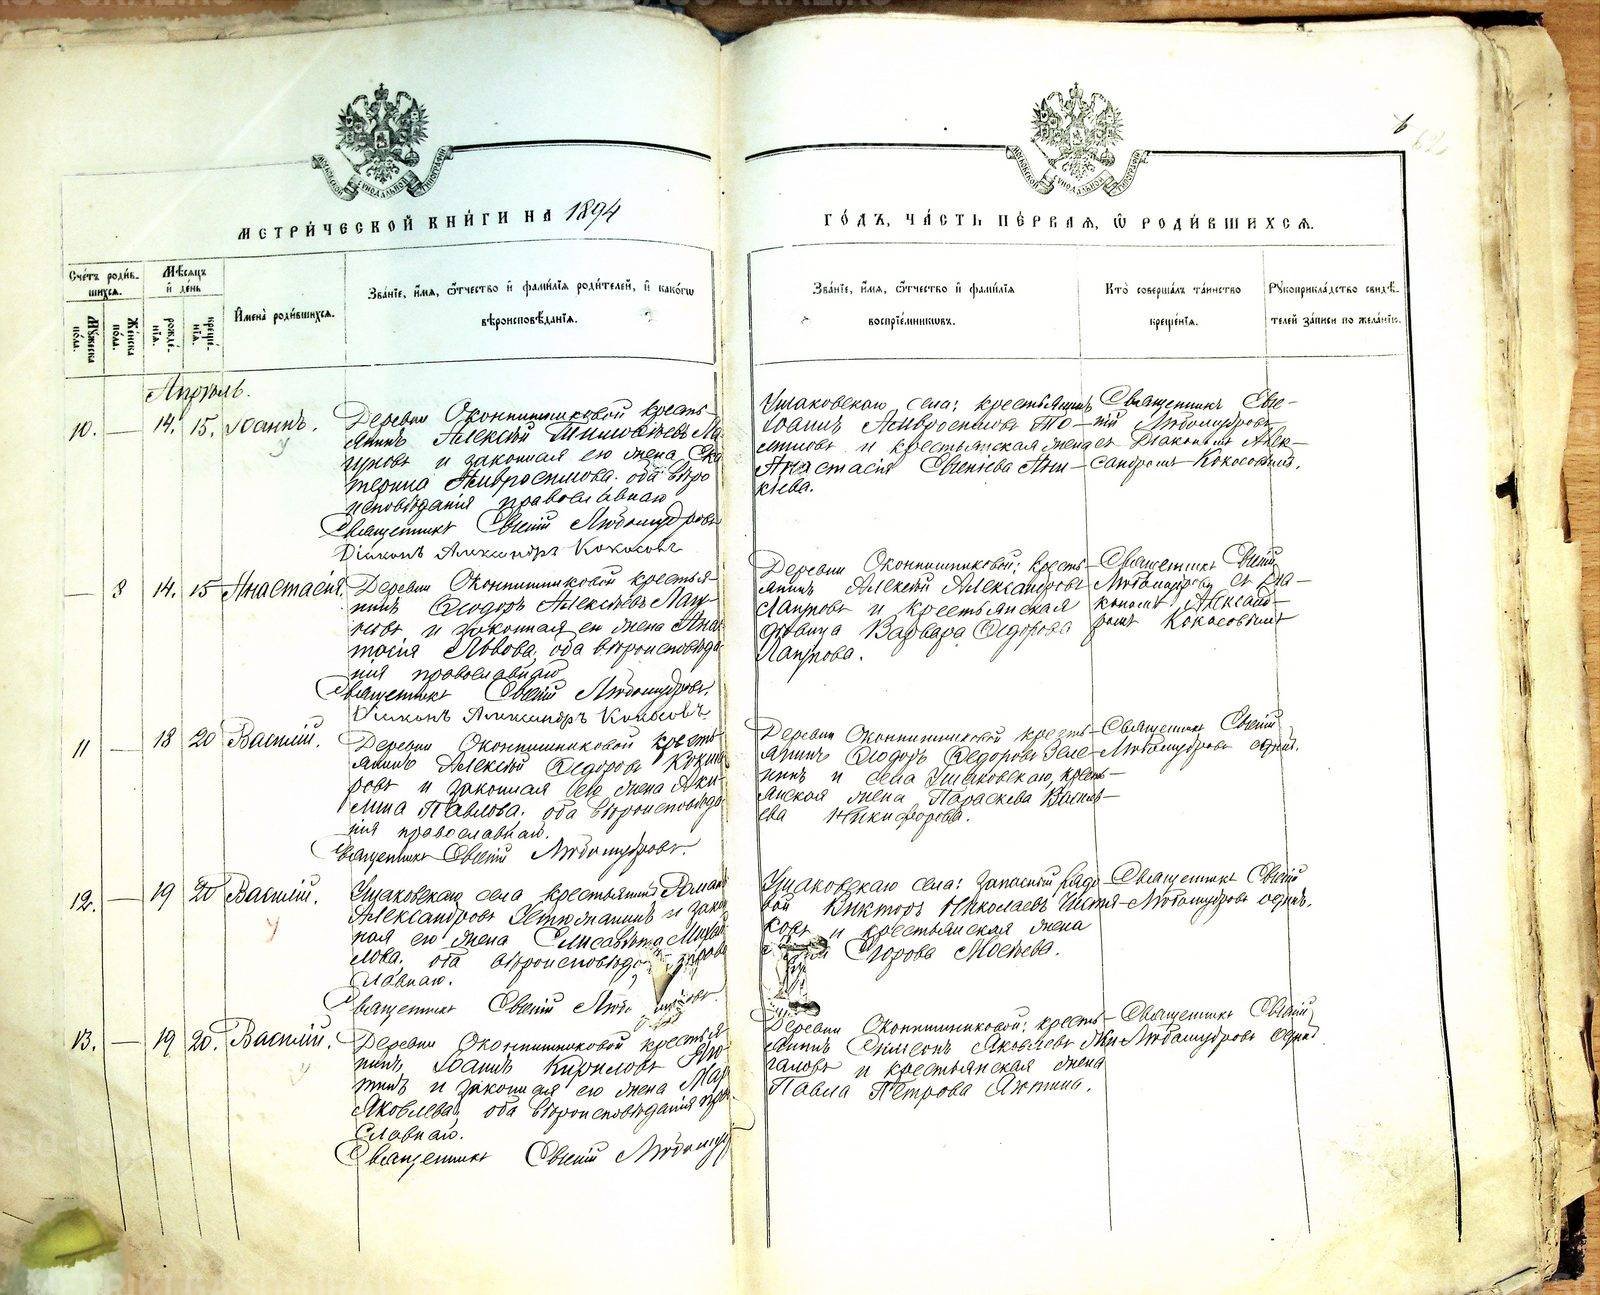 МЕТРИ́ЧЕСКОЙ КНИ́ГИ НА 1894
ГО́ДЪ, ЧА́СТЬ ПЕ́РВАЯ, Ѿ РОДИ́ВШИХСЯ.
Сче́тъ роди́в-
шихся.
Му́жеска по́ла.
Же́нска по́ла.
Мѣ́сяцъ
и҆ де́нь
рожде́-
нїѧ.
креще́-
нїѧ.
И҆мена̀ роди́вшихся.
Зва́нїе, и҆́мѧ, ѻ҆́тчество и҆ фами́лїѧ роди́телей, и҆ како́гѡ
вѣроисповѣ́данїѧ.
Зва́нїе, и҆́мѧ, ѻ҆́тчество и҆ фами́лїѧ
воспрїе́мникѡвъ.
Кто̀ соверша́лъ та́инство
креще́нїѧ.
Рꙋкоприкла́дство свидѣ́-
телей за́писи по жела́нїю.
Апрѣль.
10. — 14. 15. Іоаннъ.
Деревни Окопишниковой кресть-
янинъ Алексѣй Тимофѣевъ
и законная его жена Ека-
терина Амвросимова. оба вѣро
исповѣданія православнаго
Священникъ Евгеній Любомудровъ
Діаконъ Александръ Кокосовъ
Ушаковскаго села: крестьянинъ
Іоаннъ Амвросимовъ
и крестьянская жена
Анастасія Евгеніева
кіева.
Священникъ Евге-
ній Любомудровъ
съ Діакономъ Алек-
сандромъ Кокосовымъ.
— 3 14. 15 Анастасія.
Деревни Окопишниковой крестья-
нинъ Ѳеодоръ Алексѣевъ
и законная его жена Анас
тасія Львова. оба вѣроисповѣда
нія православнаго
Священникъ Евгеній Любомудровъ.
Діаконъ Александръ Кокосовъ
Деревни Окопишниковой: кресть-
янинъ Алексѣй Александровъ
Лаптовъ и крестьянская
дѣвица Варвара Ѳедорова
Лаптова.
Священникъ Евгеній
Любомудровъ съ Діа-
кономъ Александ-
ромъ Кокосовымъ
11 — 18 20 Василій.
Деревни Окопишниковой кресть-
янинъ Алексѣй Ѳедоровъ
и законная его жена Аки-
лина Павлова. оба вѣроисповѣда
нія православнаго.
Священникъ Евгеній Любомудровъ.
Деревни Окопишниковой кресть-
янинъ Ѳеодоръ Ѳедоровъ Зеле-
нинъ и села Ушаковскаго, кресть-
янская жена Параскева Василь-
ева Никифорова.
Священникъ Евгеній
Любомудровъ единъ.
12. — 19 20 Василій.
Ушаковскаго села крестьянинъ Романъ
Александровъ и закон
ная его жена Елисавета Михаи
лова. оба вѣроисповѣданія право
славнаго.
Священникъ Евгеній
Ушаковскаго села: запасной рядо-
вой Викторъ Николаевъ
и крестьянская жена
Егорова Мосѣева.
Священникъ Евгеній
Любомудровъ единъ.
13. — 19 20. Василій.
Деревни Окопишниковой крестья-
нинъ Іоаннъ Кириловъ
и законная его жена
Яковлева. оба вѣроисповѣданія право
славнаго.
Священникъ Евгеній Любомудр
Деревни Окопишниковой: кресть-
янинъ Симеонъ Яковлевъ
галовъ и крестьянская жена
Павла Петрова
Священникъ Евгеній
Любомудровъ единъ